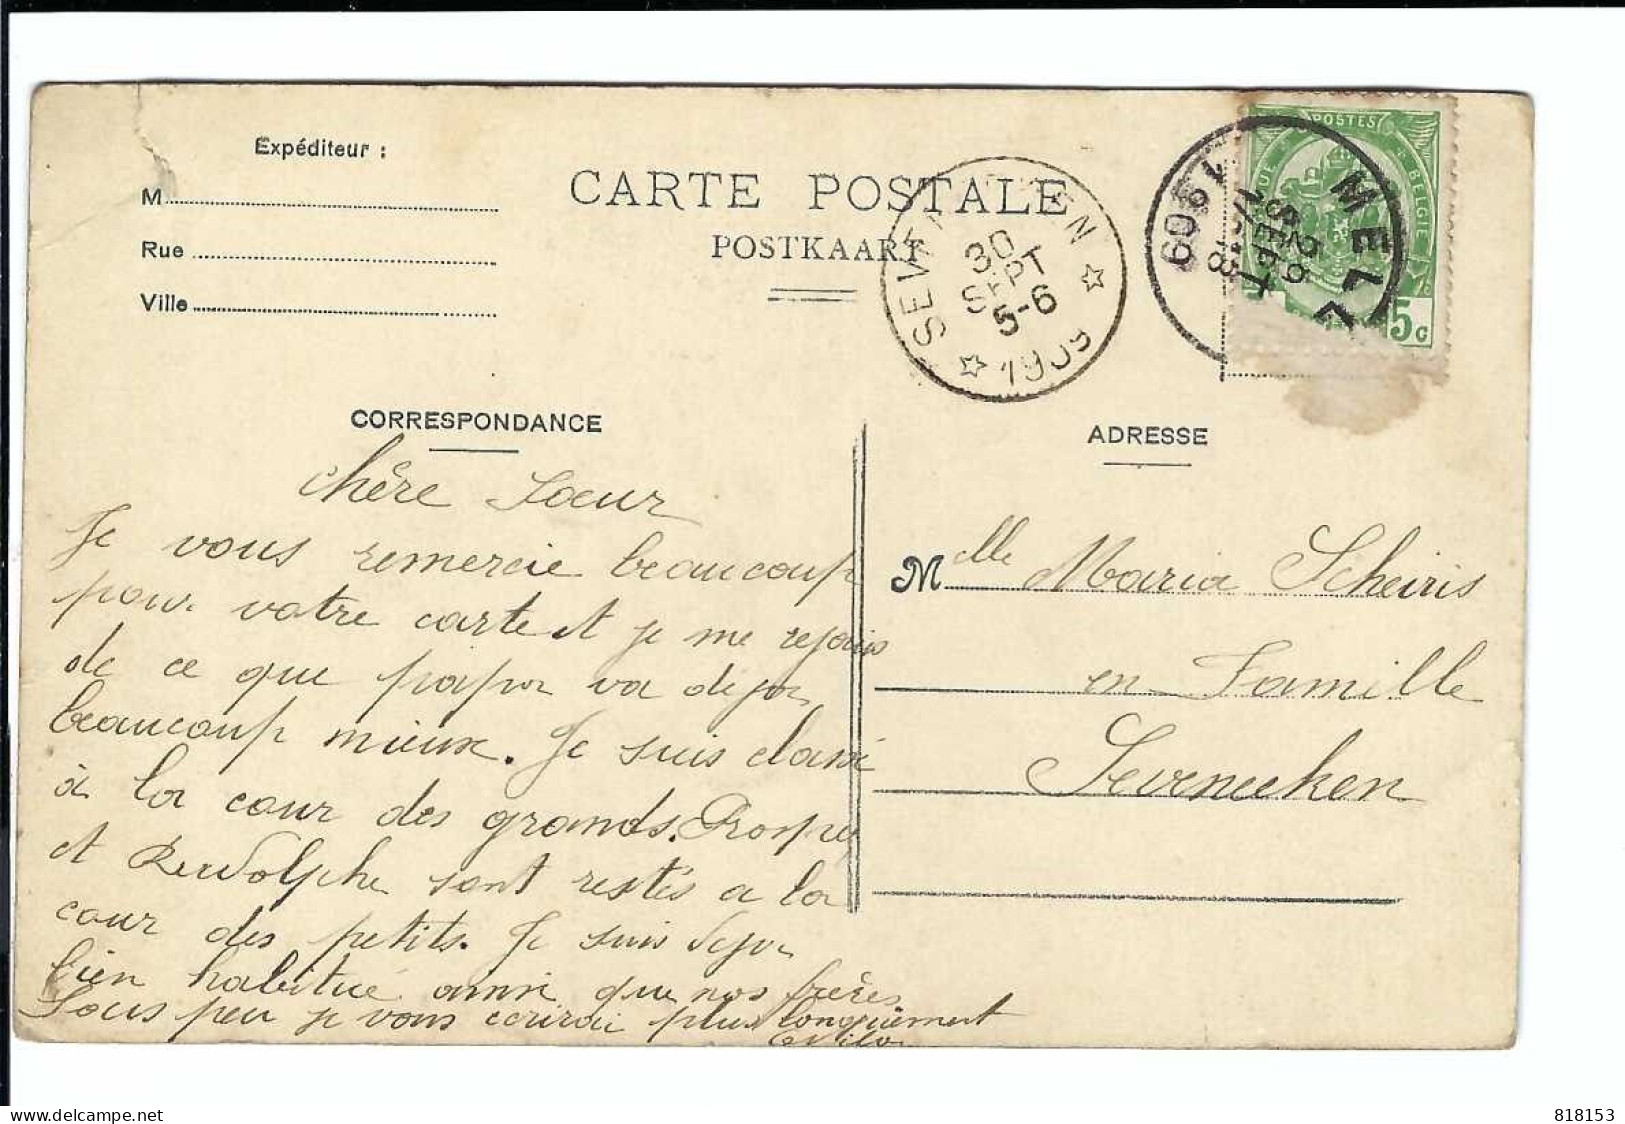 Expéditeur :
M
Rue
Ville
CARTE POSTALE
POSTKAART
30
SEPT
5-6
1909
MELLE
29
SEPT
1909
POSTES
BELGIE
5c
CORRESPONDANCE
chère Soeur
Je vous remercie beaucoup
pour votre carte et je me rejouis
de ce que papa va deja
beaucoup mieux. Je suis classé
à la cour des grands. Prosper
et Rudolphe sont restés a la
cour des petits. Je suis deja
bien habitué ainsi que nos frères.
Sous peu je vous écrirai plus longuement
ADRESSE
Mlle Maria Scheiris
en Famille
Sevenecken
818153